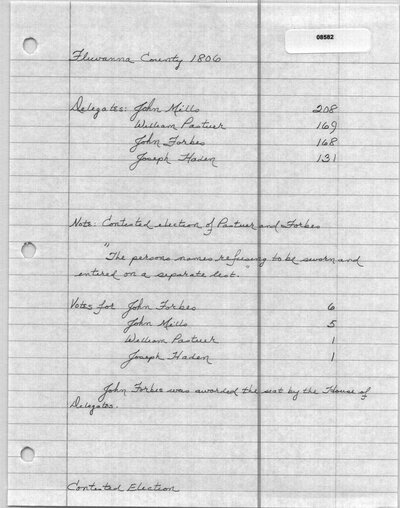 08582
Fluvanna County 1806
Delegates: John Mills 208
William Pasteur 169
John Forbes 168
Joseph Haden 131
Note: Contested election of Pasteur and Forbes
"The persons names refusing to be sworn and
entered on a separate list."
Votes for John Forbes 6
John Mills 5
William Pasteur 1
Joseph Haden 1
John Forbes was awarded the seat by the House of
Delegates.
Contested Election